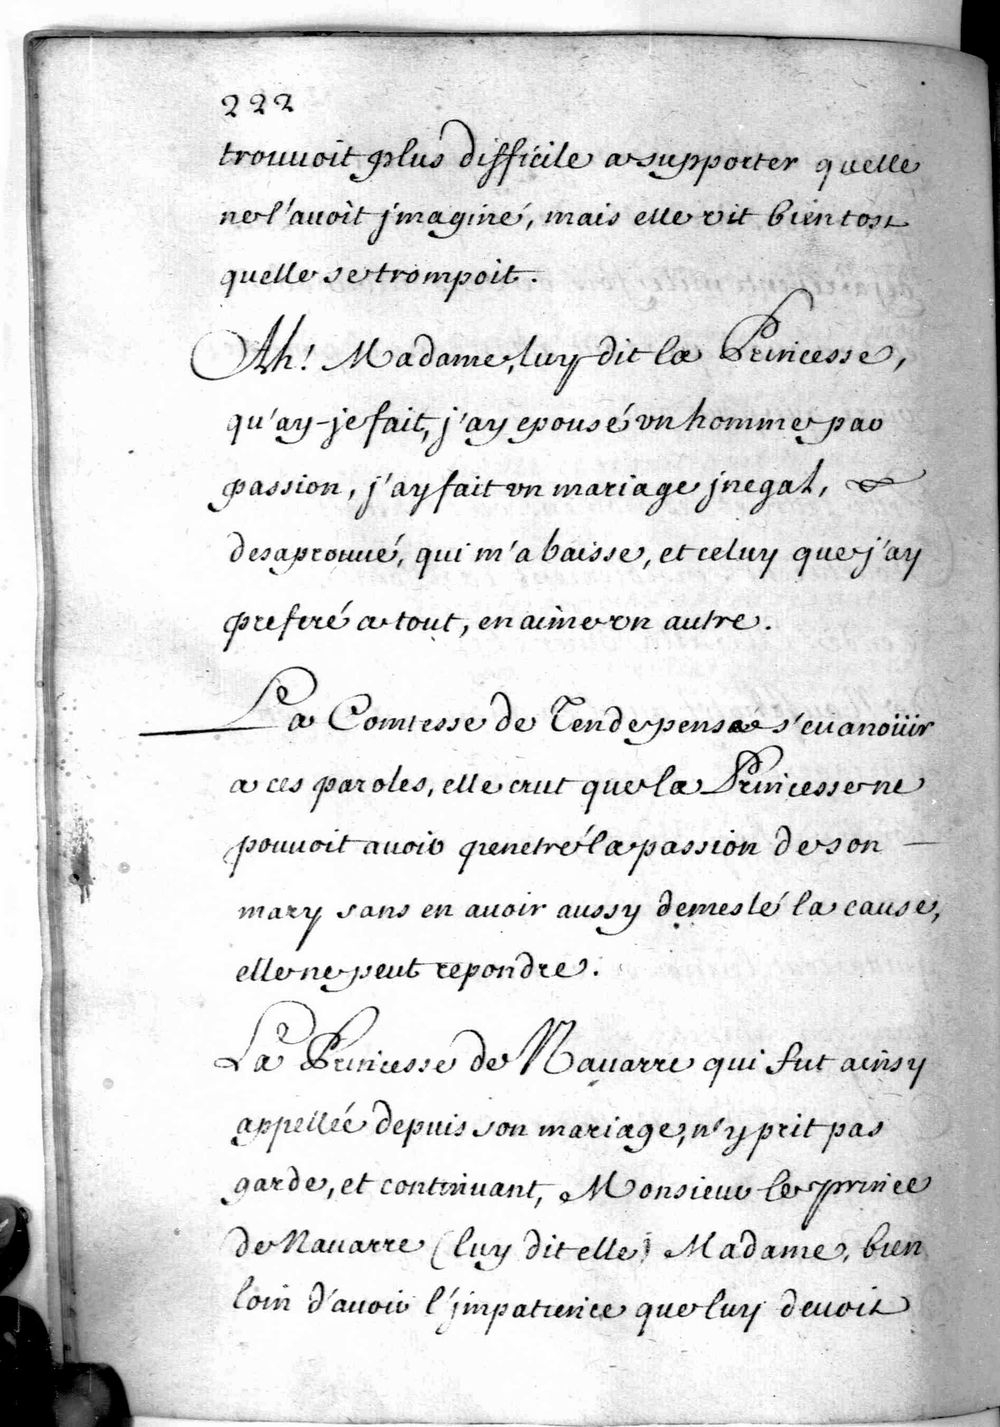 222
trouuoit plus difficile a supporter quelle
ne l'auoit jmaginé, mais elle vit bientost
quelle se trompoit.
Ah! Madame, luy dit la Princesse,
qu'ay-je fait, j'ay epousé vn homme par
passion, j'ay fait vn mariage jnegal,
desaprouué, qui m'abaisse, et celuy que j'ay
preferé a tout, en aime vn autre.
La Comtesse de Tende pensa s'euanoüir
a ces paroles, elle crut que la Princesse ne
pouuoit auoir penetré la passion de son
mary sans en auoir aussy demeslé la cause,
elle ne peut repondre.
La Princesse de Nauarre qui fut ainsy
appellée depuis son mariage, n'y prit pas
garde, et continuant, Monsieur le prince
de Nauarre (luy dit elle) Madame, bien
loin d'auoir l'jmpatience que luy deuoit